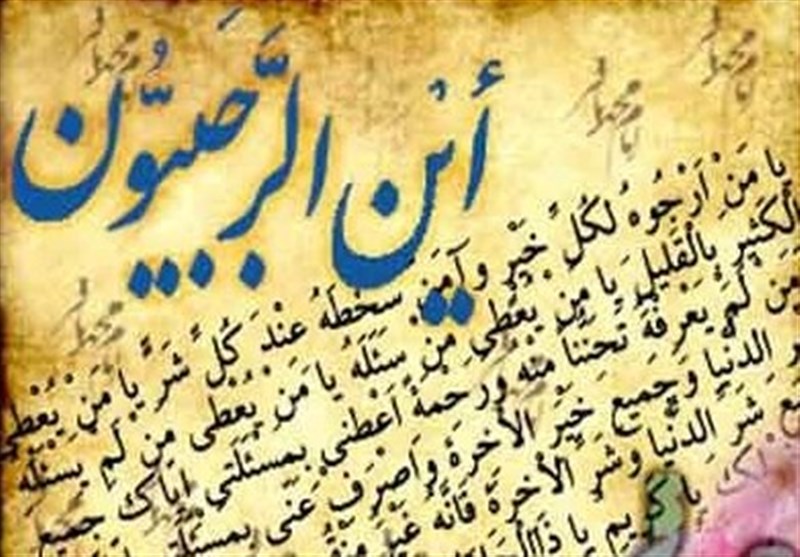 أَيْنَ الرَّجَبِيُّون
يا مَنْ اَرْجُوهُ لِكُلِّ خَيْرٍ وَآمَنُ سَخَطَهُ عِنْدَ كُلِّ شَرٍّ يا مَنْ يُعْطِي
الْكَثيرَ بِالْقَليلِ يا مَنْ يُعْطي مَنْ سَئَلَهُ يا مَنْ يُعْطى مَنْ لَمْ يَسْئَلْهُ
مَنْ لَمْ يَعْرِفْهُ تَحَنُّنًا مِنْهُ وَرَحْمَةً اَعْطِنى بِمَسْئَلَتي اِيّاكَ جَميعَ
الدُّنْيا وَجَميعَ خَيْرِ الْاخِرَةِ وَاصْرِفْ عَنّى بِمَسْئَلَتى
شَرِّ الدُّنْيا وَشَرِّ الْاخِرَةِ فَاِنَّهُ غَيْرُ
يا كَريمُ يا ذَا